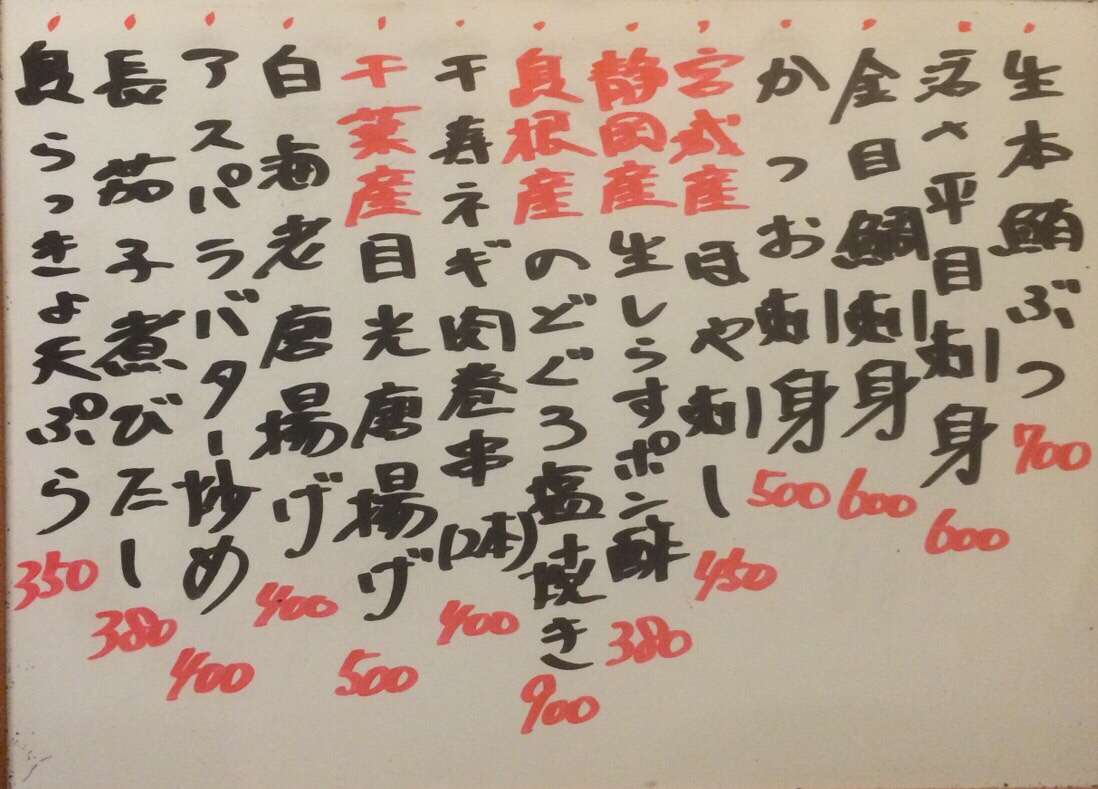 生本鮪ぶつ 700
活〆平目刺身 600
金目鯛刺身 600
かつお刺身 500
宮城産ほや刺し 450
静岡産生しらすポン酢 380
島根産のどぐろ塩焼き 900
千寿ネギ肉巻串(2本) 400
千葉産目光唐揚げ 500
白海老唐揚げ 400
アスパラバター炒め 400
長茄子煮びたし 380
島らっきょ天ぷら 350